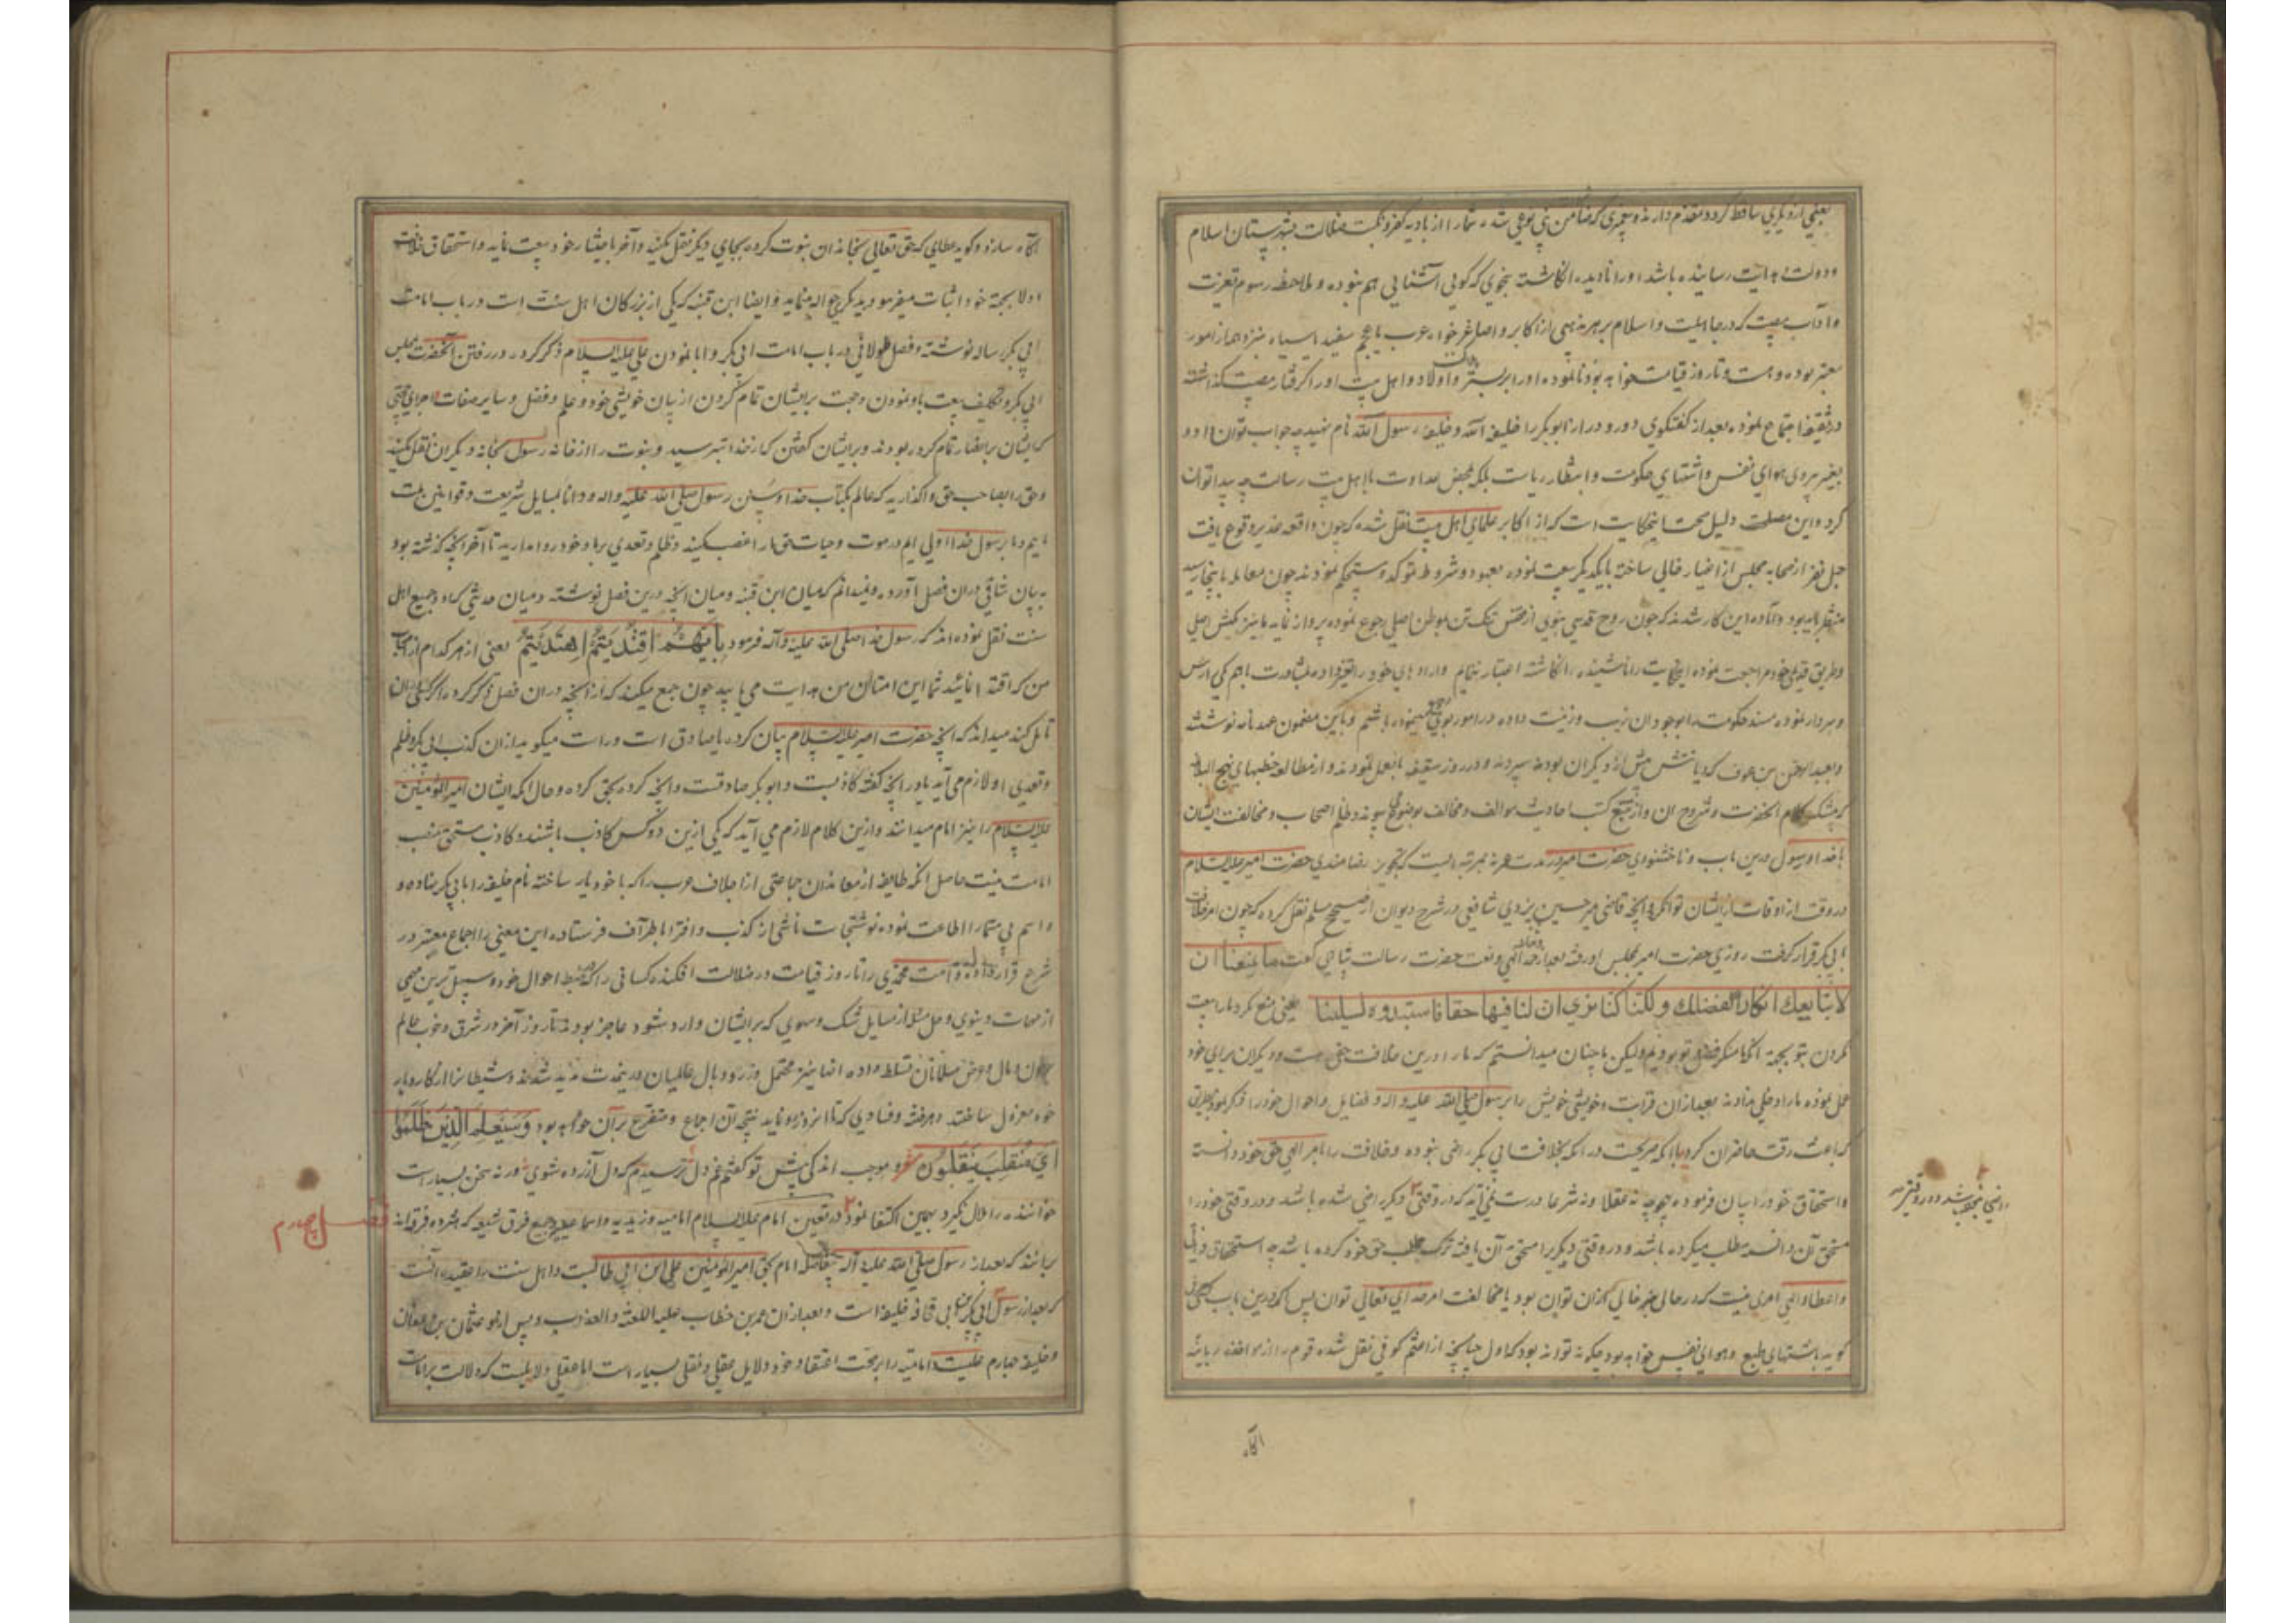 یعنی از دیگری ساقط کرده مقدم دارند و پیغمبری که ضامن
و دولت هدایت رسانیده باشد او را نادیده انکاشته بنحوی که گویی آشنایی هم نبوده و ملاحظه رسوم تعزیت
و آداب مصیبت که در جاهلیت و اسلام بر هر مذهبی از اکابر و اصاغر خواه عرب یا عجم سفید یا سیاه
معتبر بوده و هست و تا روز قیامت خواهد بود نانموده او را بر بستر و اولاد و اهل بیت او را گرفتار مصیبت گذاشته
در سقیفه اجتماع نموده بعد از گفتگوی دور و دراز ابوبکر را خلیفه الله و خلیفه رسول الله نام نهند چه جواب توان داد و
بغیر پیروی هوای نفس و اشتهای حکومت و انتظار ریاست بلکه محض عداوت با اهل بیت رسالت چه پیدا توان
کرد و این مصلحت دلیل صحت این حکایت است که از اکابر علمای اهل بیت نقل شده که چون واقعه غدیر وقوع یافت
چهل نفر از صحابه مجلس از اغیار خالی ساخته با یکدیگر بیعت نموده بعهود و شروط مؤکد و مستحکم نمودند چون معامله باینجا رسید
منتظر می‌بود و آماده این کار شدند که چون روح قدسی نبوی از قفس تنگ تن بوطن اصلی رجوع نموده پرواز نماید ما نیز بکیش اصلی
و طریق قدیمی خود مراجعت نموده
و سردار نموده مسند حکومت را بوجود آن زیب و زینت داده در امور دنیوی باشیم و باین مضمون عهدنامه نوشته
و بعبد الرحمن بن عوف که دیانتش بیش از دیگران بود سپردند و در روز سقیفه بفعل نمودند و از مطالعه خطبهای نهج البلاغه
که بیشک کلام آنحضرت و شروح آن و از تتبع کتب احادیث موالف و مخالف بوضوح می پیوندد ظلم اصحاب و مخالفت ایشان
با خدا و رسول درین باب و ناخشنودی حضرت امیر در مدت عمر نه بمرتبه ایست که تجویز رضامندی حضرت امیر علیه السلام
در وقت از اوقات از ایشان توان کرد و آنچه قاضی میر حسین یزدی شافعی در شرح دیوان از صحیح مسلم نقل کرده که چون امر خلافت
بابی بکر قرار گرفت روزی حضرت امیر بمجلس او رفته بعد از حمد الهی و نعت حضرت رسالت پناهی گفت ما یمنعنا ان
لا نبایعک انکار لفضلک و لکنا کنا نری ان لنا فیها حقا فاستبدوه لسلبنا یعنی منع نکرد ما را از بیعت
کردن بتو بجهة آنکه منکر فضل تو بودیم ولیکن ما چنان میدانستیم که ما را درین خلافت حقی هست و دیگران برای خود
عمل نموده ما را دخلی ندادند بعد از آن قرابت و خویشی خویش را برسول صلی الله علیه و اله و فضایل و احوال خود را ذکر نمود بطریق
که باعث رقت حاضران گردید با آنکه صریحست در آنکه بخلافت ابی بکر راضی نبوده و خلافت را بامر الهی حق خود دانسته
و استحقاق خود را بیان فرموده بهیچوجه نه عقلا و نه شرعا درست نمی آید که در وقتی دیگر راضی شده باشد و در وقتی خود را
مستحق آن دانسته مطلب میکرده باشد و در وقتی دیگر را مستحق آن یافته ترک طلب حق خود کرده باشد چه استحقاق ذاتی
و اعطاء الهی امری نیست که در حالی بغیر حالی گذران توان بود یا مخالفت امر خدای تعالی توان پس اگر درین باب کسی
گوید باشتهای طبع و هوای نفس خواهد بود چگونه تواند بود که اول چنانچه از اعثم کوفی نقل شده قوم را از مواخذه ربانی
آگاه
راضی نخواهد شد و در وقتی
آگاه سازد و گوید عطایی که حق تعالی بخانه آن نبوت کرده بجای دیگر نقل مکنید و آخر باختیار خود بیعت نماید و استحقاق خلافت
اولا بجهة خود اثبات میفرمود بدیگری حواله نماید و ایضا ابن قتیبه که یکی از بزرگان اهل سنت است در باب امامت
ابی بکر رساله نوشته و فصل طولانی در باب امامت ابی بکر و ابا نمودن علی علیه السلام ذکر کرده و در رفتن آنحضرت بمجلس
ابی بکر و تکلیف بیعت باو نمودن و حجت بر ایشان تمام کردن از بیان خویشی خود و علم و فضل و سایر صفات
که ایشان بر انصار تمام کرده بودند و بر ایشان گفتن که از خدا بترسید و نبوت را از خانه رسول بخانه دیگران نقل مکنید
و حق را بصاحب حق واگذارید که عالم بکتاب خدا و سنن رسول صلی الله علیه و اله و دانا بمسایل شریعت و قوانین ملت
ماییم و ما برسول خدا اولی ایم در موت و حیات حق ما را غصب مکنید و ظلم و تعدی بر ما و خود روا مدارید تا آخر آنچه گذشته بود
به بیان شافی در آن فصل آورده و نمیدانم که میان ابن قتیبه و میان آنچه درین فصل نوشته و میان حدیثی که او و جمیع اهل
سنت نقل نموده اند که رسول خدا صلی الله علیه و آله فرمود بایهم اقتدیتم اهتدیتم یعنی از هر کدام از اصحاب
من که اقتدا نمائید شما این امتان من هدایت می یابید چون جمع میکند که از آنچه در آن فصل ذکر کرده
تامل کند میداند که آنچه حضرت امیر علیه السلام بیان کرده یا صادق است و راست میگوید از آن کذب ابی بکر و ظلم
و تعدی او لازم می آید یا در آنچه گفته کاذبست و ابو بکر صادقست و آنچه کرده بحق کرده و حال آنکه ایشان امیر المؤمنین
علیه السلام را نیز امام میدانند و ازین کلام لازم می آید که یکی ازین دو کس کاذب باشند و کاذب مستحق منصب
امامت نیست حاصل آنکه طایفه از معاندان جماعتی از اجلاف عرب را که با خود یار ساخته نام خلیفه را بابی بکر نهاده و
و اسم بی مسما را اطاعت نموده نوشتجات ناشی از کذب و افترا باطراف فرستاده این معنی را اجماع معتبر در
شرع قرار داده و امت محمدی را تا روز قیامت در ضلالت افکنده کسانی را که ضبط احوال خود و سهل ترین مهمی
از مهمات دنیوی و حل مسئله از مسایل شک و سهوی که بر ایشان وارد شود عاجز بودند تا روز آخر در شرق و غرب عالم
بخون و مال و عرض مسلمانان تسلط داده آنها نیز متحمل وزر و وبال عالمیان
خود معزول ساختند و هر فتنه و فسادی که تا امروز رو نماید نتیجه آن اجماع و متفرع بر آن خواهد بود و سیعلم الذین ظلموا
ای منقلب ینقلبون شعر و بموجب اندکی پیش تو گفتم غم دل ترسیدم که دل آزرده شوی ور نه سخن بسیار است
خواننده را ملال نگیرد بهمین اکتفا نمود در تعیین امام علیه السلام امامیه و زیدیه و اسماعیلیه و جمیع فرق شیعه که هژده فرقه اند
فصل چهارم
برانند که بعد از رسول صلی الله علیه و آله بیفاصله امام بحق امیر المؤمنین علی ابن ابی طالبست و اهل سنت را عقیده آنست
که بعد از رسول ابی بکر بن ابی قحافه خلیفه است و بعد از آن عمر بن خطاب علیه اللعنة والعذاب و پس از او عثمان بن عفان
و خلیفه چهارم علیست و امامیه را بر صحت اعتقاد خود دلایل عقلی و نقلی بسیار است اما عقلی دلایلیست که دلالت بر امامت